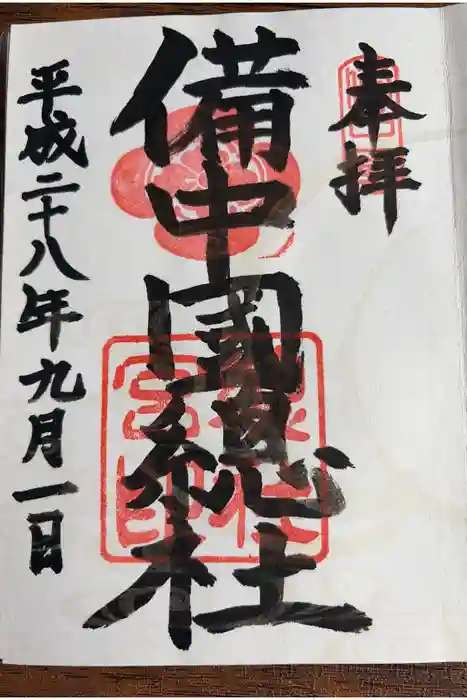 奉拝
備中國総社
平成二十八年九月一日